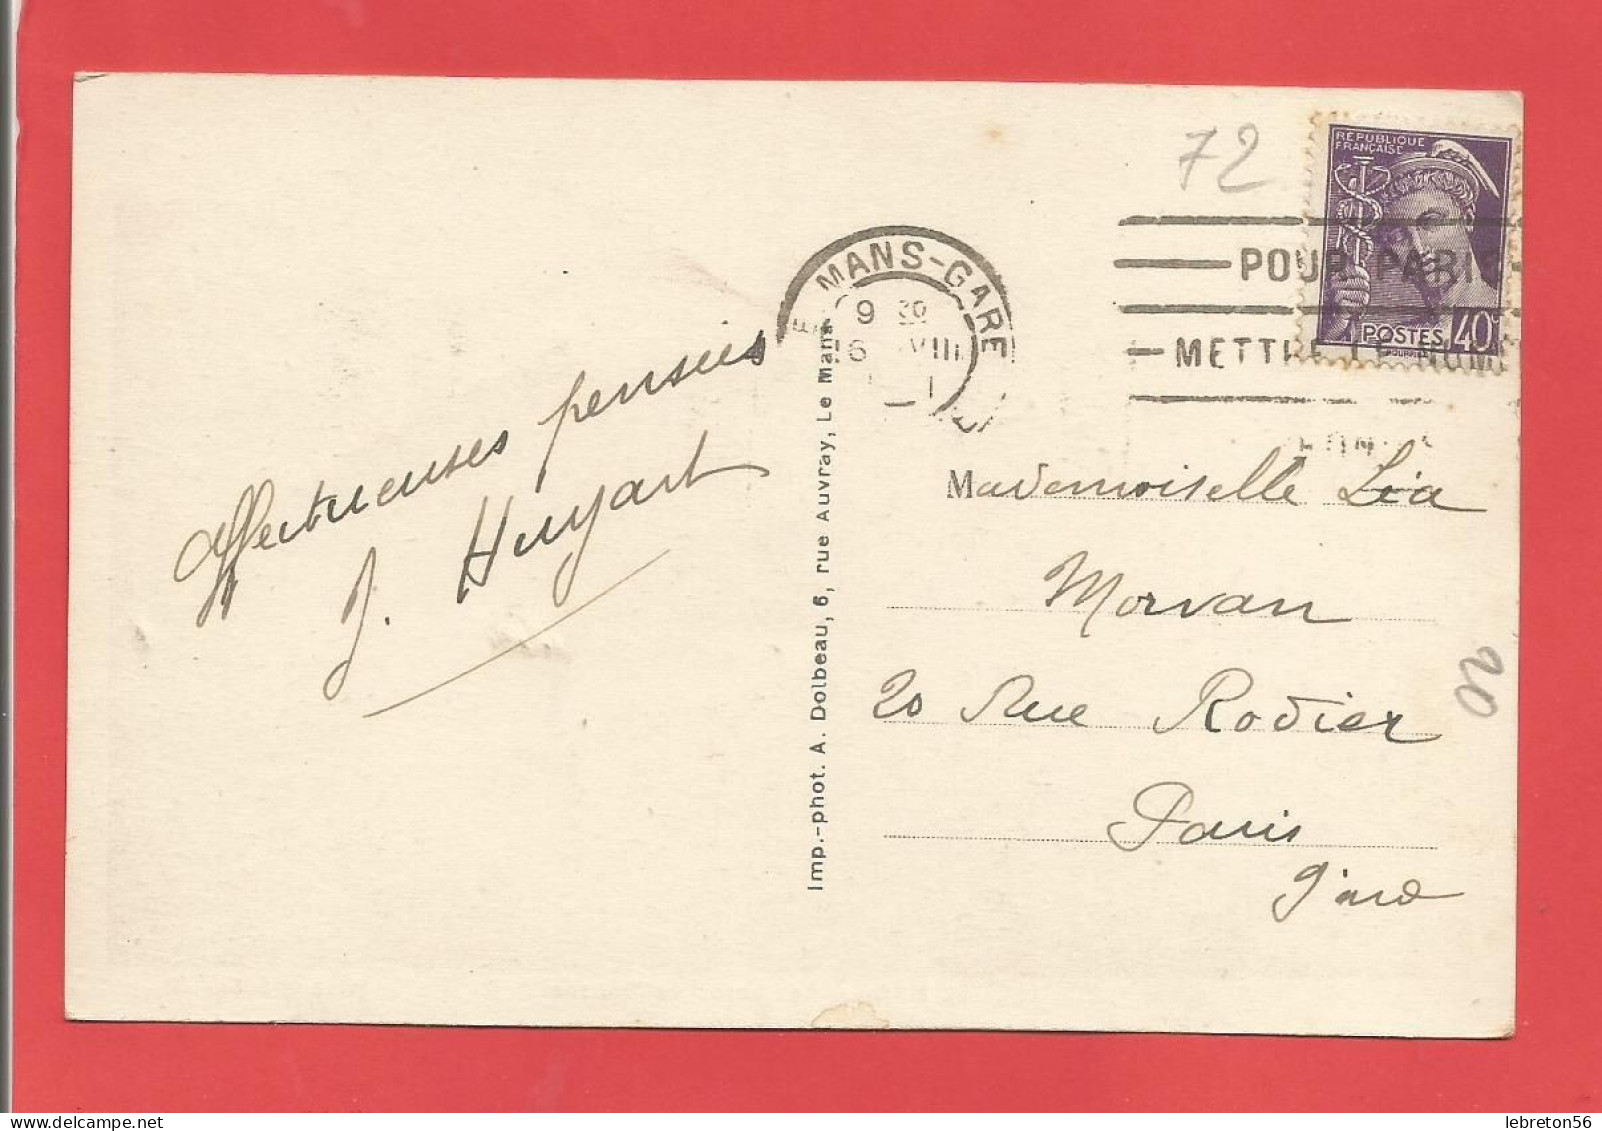 72
RÉPUBLIQUE
FRANÇAISE
POSTES 40c
MANS-GARE
9 30
6 VIII
POUR PARIS
METTRE LE NUM
Affectueuses pensées
J. Huyart
Imp.-phot. A. Dolbeau, 6, rue Auvray, Le Mans
Mademoiselle Léa
Morvan
20 Rue Rodier
Paris
9
20
lebreton56